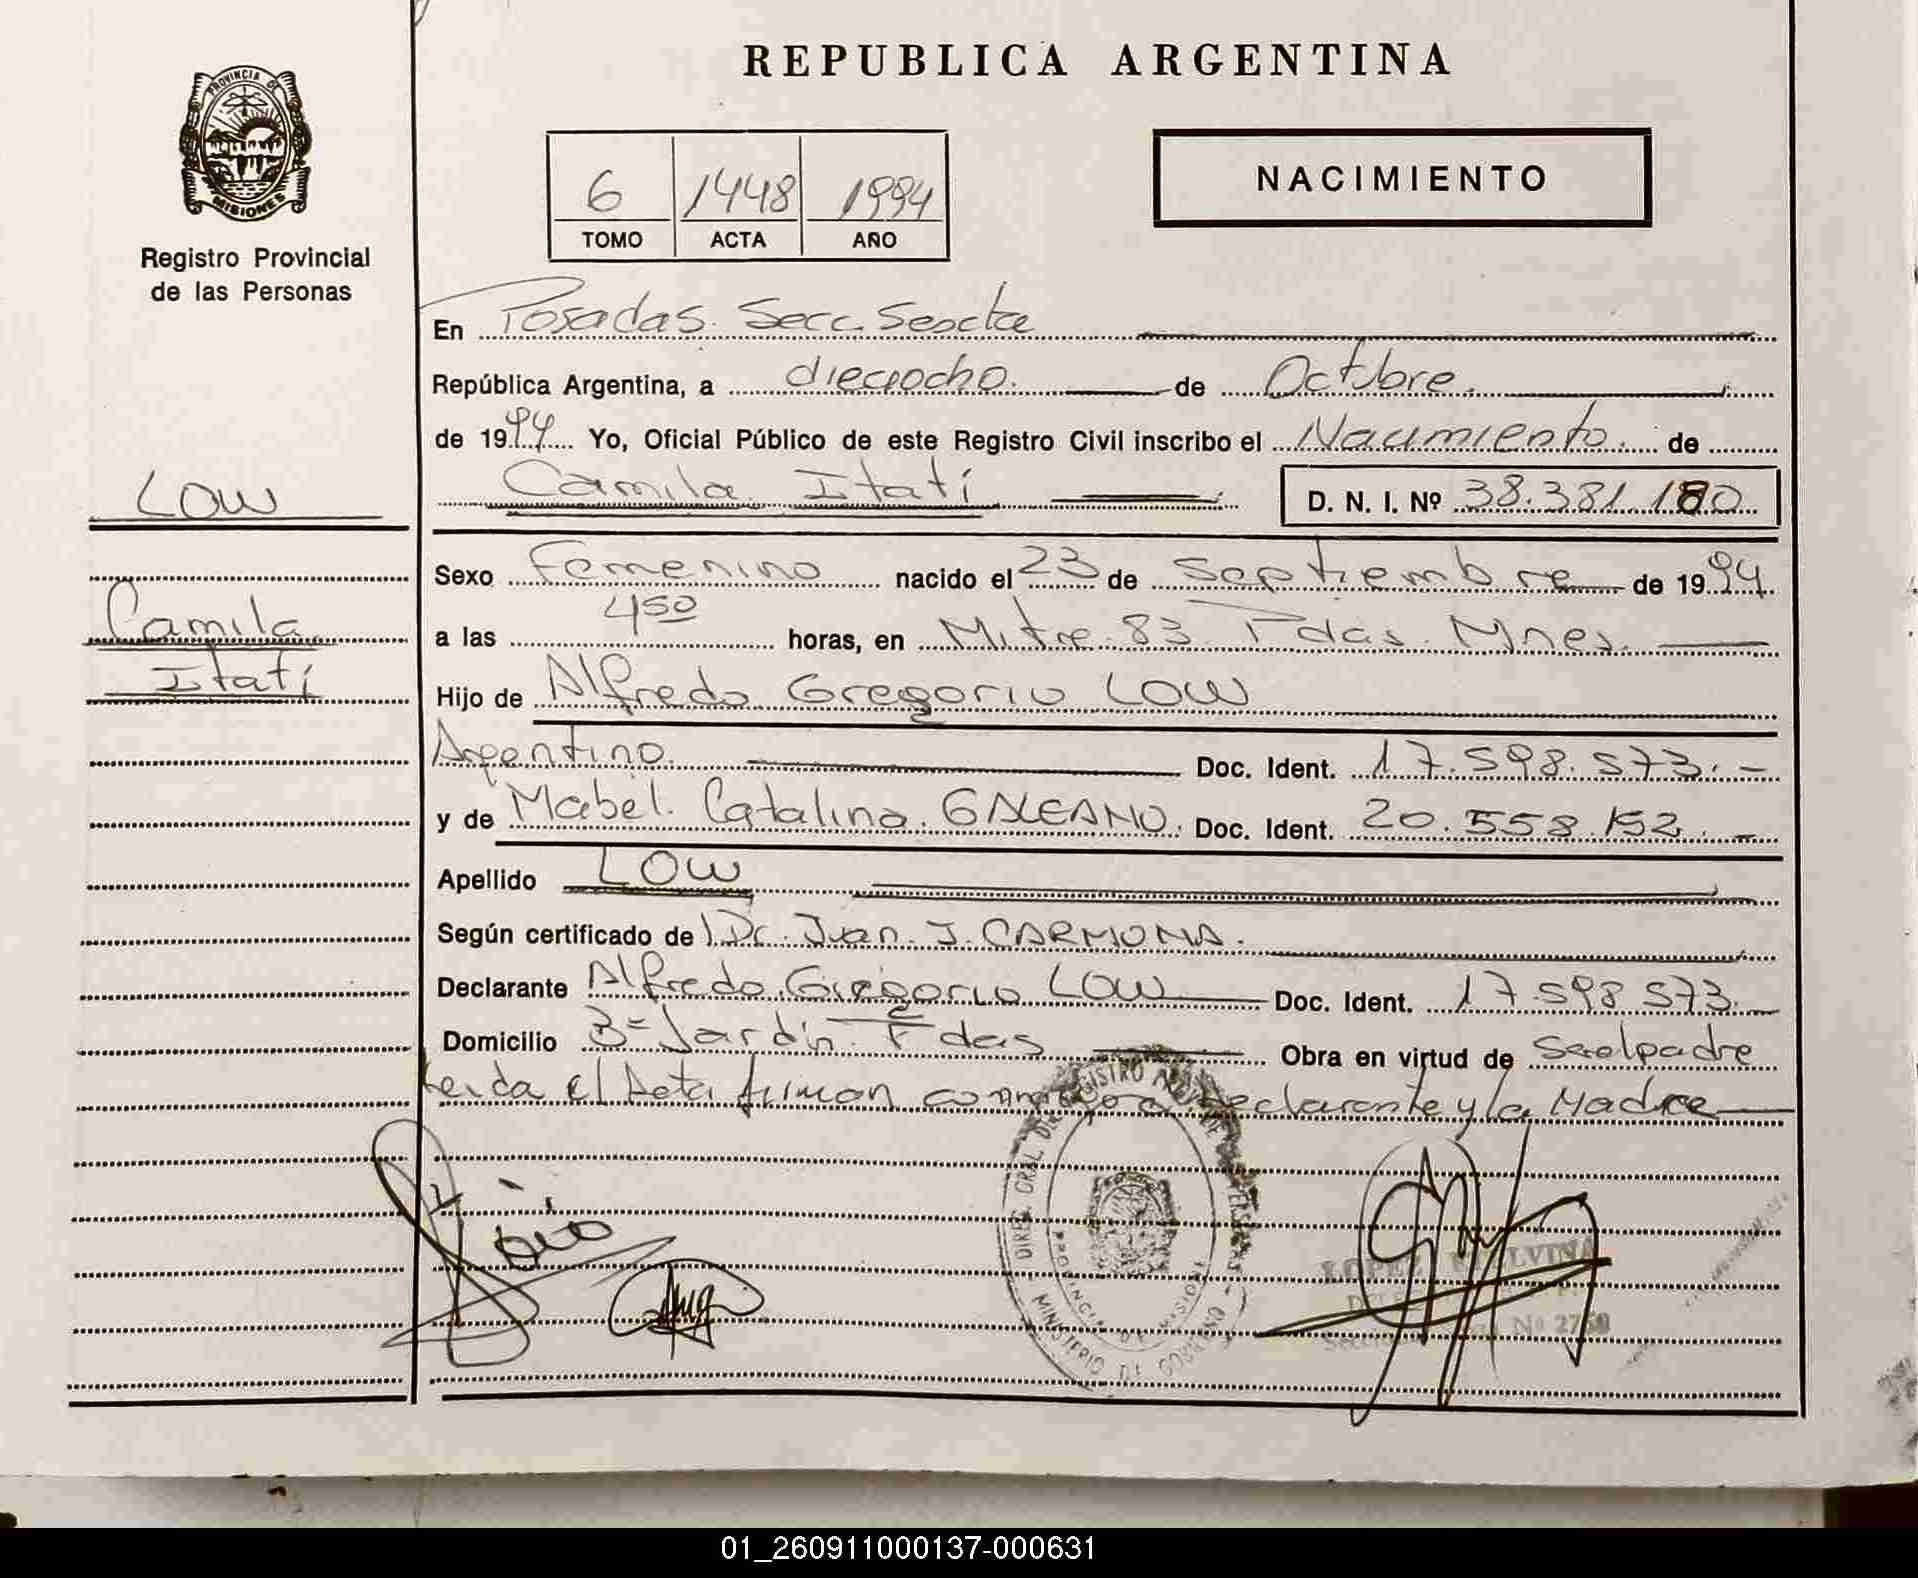 REPUBLICA ARGENTINA
PROVINCIA DE
MISIONES
Registro Provincial
de las Personas
6 1448 1994
TOMO ACTA AÑO
NACIMIENTO
En Posadas. Secc. Sexta
República Argentina, a dieciocho. de Octubre.
de 1994 Yo, Oficial Público de este Registro Civil inscribo el Nacimiento. de
LOW
Camila Itatí D. N. I. Nº 38.381.180
Sexo Femenino nacido el 23 de Septiembre de 1994
Camila
Itatí
a las 4 50 horas, en Mitre 83 Pdas. Mnes.
Hijo de Alfredo Gregorio LOW
Argentino. Doc. Ident. 17.598.573.-
y de Mabel. Catalina. GALEANO. Doc. Ident. 20.558.152.-
Apellido LOW
Según certificado de Dr. Juan. J. CARMONA.
Declarante Alfredo Gregorio LOW Doc. Ident. 17.598.573.
Domicilio 3= Jardín Pdas Obra en virtud de Ser el padre
Leida el Acta firman conmigo el declarante y la Madre
MINISTERIO DE GOBIERNO
PROVINCIA DE MISIONES
LOPEZ MALVINA
Nº 2750
01_260911000137-000631